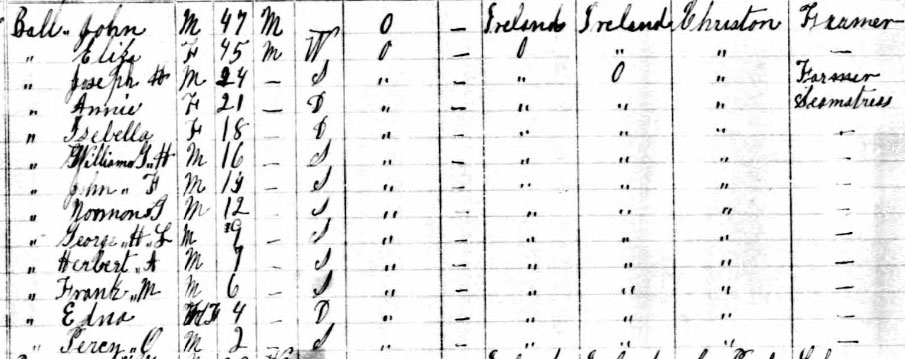 Ball „ John M 47 M O — Ireland Ireland Christon Framer
„ Eliza F 45 M W O — O „ „ —
„ Joseph H M 24 — S „ — „ O „ Farmer
„ Annie F 21 — D „ — „ „ „ Seamstress
„ Isebella F 18 — D „ — „ „ „ —
„ William G „ H M 16 — S „ — „ „ „ —
„ John „ F M 14 — S „ — „ „ „ —
„ Normon G M 12 — S „ — „ „ „ —
„ George „ H „ L M 9 — S „ — „ „ „ —
„ Herbert „ A M 7 — S „ — „ „ „ —
„ Frank „ M M 6 — S „ — „ „ „ —
„ Edna F 4 — D „ — „ „ „ —
„ Percy „ O M 2 — S „ — „ „ „ —